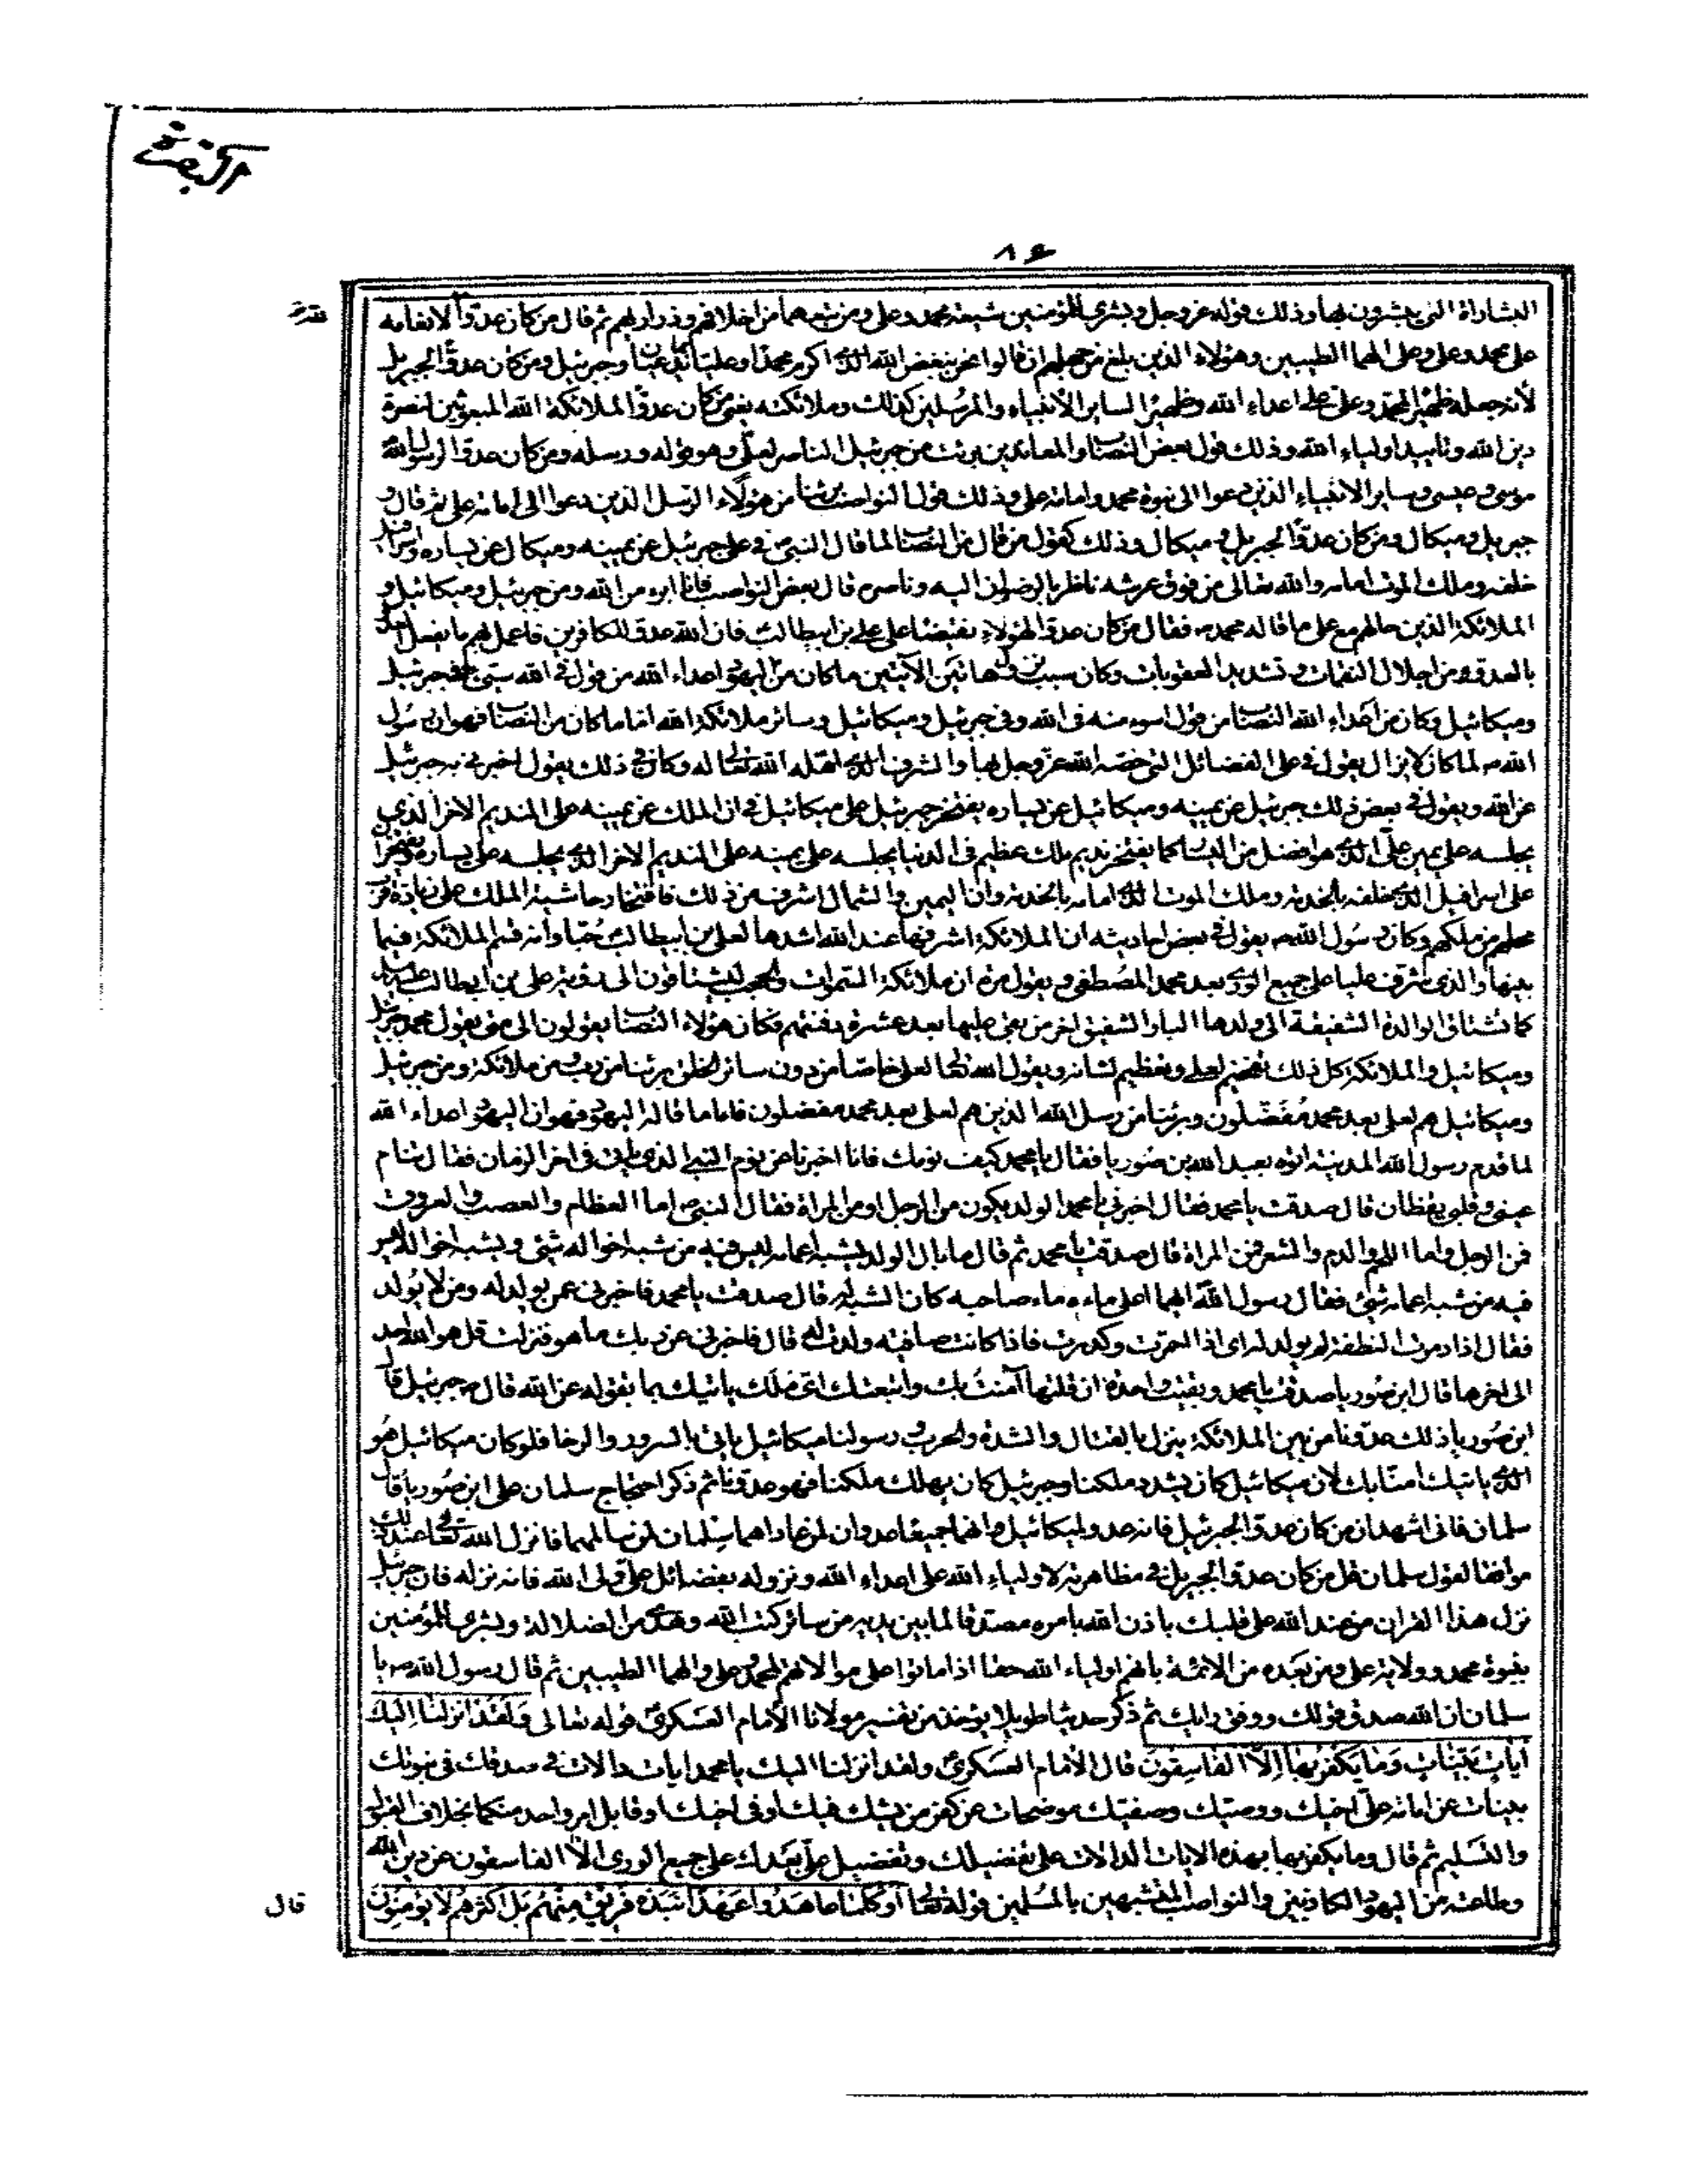 ٨٤
البشاراة التي يبشرون بها وذلك قوله عز وجل وبشرى للمؤمنين شيعة محمد وعلي ومن تبعهما من اخلافهم وذراريهم ثم قال من كان عدوا لله لانعامه
على محمد وعلي وعلى الهما الطيبين وهؤلاء الذين بلغ من جهلهم ان قالوا نحن نبغض الله الذي اكرم محمدا وعليا بما يدعيان وجبرئيل ومن كان عدوا لجبريل
لأنه جعله ظهيرا لمحمد وعلي على اعداء الله وظهيرا لساير الأنبياء والمرسلين كذلك وملائكته يعني من كان عدوا لملائكة الله المبعوثين لنصرة
دين الله وتاييد اولياء الله وذلك قول بعض النصاب والمعاندين برئت من جبرئيل الناصر لعلي وهو قوله ورسله ومن كان عدوا لرسل الله
موسى وعيسى وساير الانبياء الذين دعوا الى نبوة محمد وامامة علي وذلك قول النواصب برئنا من هؤلاء الرسل الذين دعوا الى امامة علي ثم قال و
جبريل وميكال ومن كان عدوا لجبريل وميكال وذلك كقول من قال من النصاب لما قال النبي ص في علي جبرئيل عن يمينه وميكال عن يساره واسرافيل
خلفه وملك الموت امامه والله تعالى من فوق عرشه ناظر بالرضوان اليه وناصره قال بعض النواصب فانا ابرء من الله ومن جبرئيل وميكائيل و
الملائكة الذين حالهم مع علي ما قاله محمد ص فقال من كان عدوا لهؤلاء تعصبا على علي بن ابيطالب فان الله عدو للكافرين فاعل بهم ما يفعل العدو
بالعدو من احلال النقمات وتشديد العقوبات وكان سبب نزول هاتين الآيتين ما كان من اليهود اعداء الله من قول في الله سيئ وفي جبرئيل
وميكائيل وكان من اعداء الله النصاب من قول اسوء منه في الله وفي جبرئيل وميكائيل وسائر ملائكة الله اما ما كان من النصاب فهو ان رسول
الله ص لما كان لا يزال يقول في علي الفضائل التي خصه الله عز وجل بها والشرف الذي اهله الله تعالى له وكان في ذلك يقول اخبرني به جبرئيل
عن الله ويقول في بعض ذلك جبرئيل عن يمينه وميكائيل عن يساره يفتخر جبرئيل على ميكائيل في ان الملك عن يمينه على النديم الاخر الذي
يجلسه على يمين علي الذي هو افضل من اليسار كما يفتخر نديم ملك عظيم في الدنيا يجلسه على يمينه على النديم الاخر الذي يجلسه على يساره ويفتخران
على اسرافيل الذي خلفه بالخدمة وملك الموت الذي امامه بالخدمة وان اليمين والشمال اشرف من ذلك فافتخار حاشية الملك على زيادة قرب
محلهم من ملكهم وكان رسول الله ص يقول في بعض احاديثه ان الملائكة اشرفها عند الله اشدها لعلي بن ابيطالب حبا وانه قسم الملائكة فيما
بينها والذي شرف عليا على جميع الورى بعد محمد المصطفى ويقول مرة ان ملائكة السموات والحجب ليشتاقون الى رؤية علي بن ابيطالب
كما تشتاق الوالدة الشفيقة الى ولدها البار الشفيق اخر من بقي عليها بعد عشرة دفنتهم فكان هؤلاء النصاب يقولون الى متى يقول محمد جبرئيل
وميكائيل والملائكة كل ذلك تفخيم لعلي وتعظيم لشانه ويقول الله تعالى لعلي خاصا من دون سائر الخلق برئنا من رب من ملائكة ومن جبرئيل
وميكائيل هم لعلي بعد محمد مفضلون وبرئنا من رسل الله الذين هم لعلي بعد محمد مفضلون فاما ما قاله اليهود فهو ان اليهود اعداء الله
لما قدم رسول الله المدينة اتوه بعبد الله بن صوريا فقال يا محمد كيف نومك فانا اخبرنا عن نوم النبي الذي ياتي في اخر الزمان فقال تنام
عيني وقلبي يقظان قال صدقت يا محمد فقال اخبرني يا محمد الولد يكون من الرجل او من المراة فقال النبي ص اما العظام والعصب والعروق
فمن الرجل واما اللحم والدم والشعر فمن المراة قال صدقت يا محمد ثم قال ما بال الولد يشبه اعمامه ليس فيه من شبه اخواله شئ ويشبه اخواله ليس
فيه من شبه اعمامه شئ فقال رسول الله ايهما اعلى ماءه ماء صاحبه كان الشبه له قال صدقت يا محمد فاخبرني عمن يولد له ومن لا يولد
فقال اذا مرت النطفة لم يولد له اى اذا احمرت وكدرت فاذا كانت صافية ولد له قال فاخبرني عن ربك ما هو فنزلت قل هو الله احد
الى اخرها قال ابن صوريا صدقت يا محمد وبقيت واحدة ان قلتها آمنت بك واتبعتك اي ملك ياتيك بما تقوله عن الله قال جبرئيل قال
ابن صوريا ذلك عدونا من بين الملائكة ينزل بالقتال والشدة والحرب ورسولنا ميكائيل ياتي بالسرور والرخا فلو كان ميكائيل هو
الذي ياتيك امنا بك لأن ميكائيل كان يشدد ملكنا وجبرئيل كان يهلك ملكنا فهو عدونا ثم ذكر احتجاج سلمان على ابن صوريا قال
سلمان فاني اشهد ان من كان عدوا لجبرئيل فانه عدو لميكائيل وانهما جميعا عدوان لمن عاداهما سلمان لمن سالمهما فانزل الله تعالى عند ذلك
موافقا لقول سلمان قل من كان عدوا لجبريل في مظاهرته لاولياء الله على اعداء الله ونزوله بفضائل علي ولي الله فانه نزله فان جبرئيل
نزل هذا القران من عند الله على قلبك باذن الله بامره مصدقا لما بين يديه من سائر كتب الله وهدى من الضلالة وبشرى للمؤمنين
بنبوة محمد وولاية علي ومن بعده من الائمة بانهم اولياء الله حقا اذا ماتوا على موالاتهم لمحمد وعلي والهما الطيبين ثم قال رسول الله ص يا
سلمان ان الله صدق قولك ووفق رايك ثم ذكر حديثا طويلا يؤخذ من تفسير مولانا الأمام العسكري قوله تعالى ولقد انزلنا اليك
آيات بينات وما يكفر بها إلا الفاسقون قال الأمام العسكري ولقد انزلنا اليك يا محمد ايات دالات في صدقك في نبوتك
بينات عن امامة علي اخيك ووصيك وصفيك موضحات عن كفر من يشك فيك او في اخيك او قابل امر واحد منكما بخلاف القبول
والتسليم ثم قال وما يكفر بها بهذه الايات الدالات على تفضيلك وتفضيل علي بعدك على جميع الورى الا الفاسقون عن دين الله
وطاعته من اليهود الكاذبين والنواصب المتشبهين بالمسلمين قوله تعالى أو كلما عاهدوا عهدا نبذه فريق منهم بل اكثرهم لا يؤمنون
قال